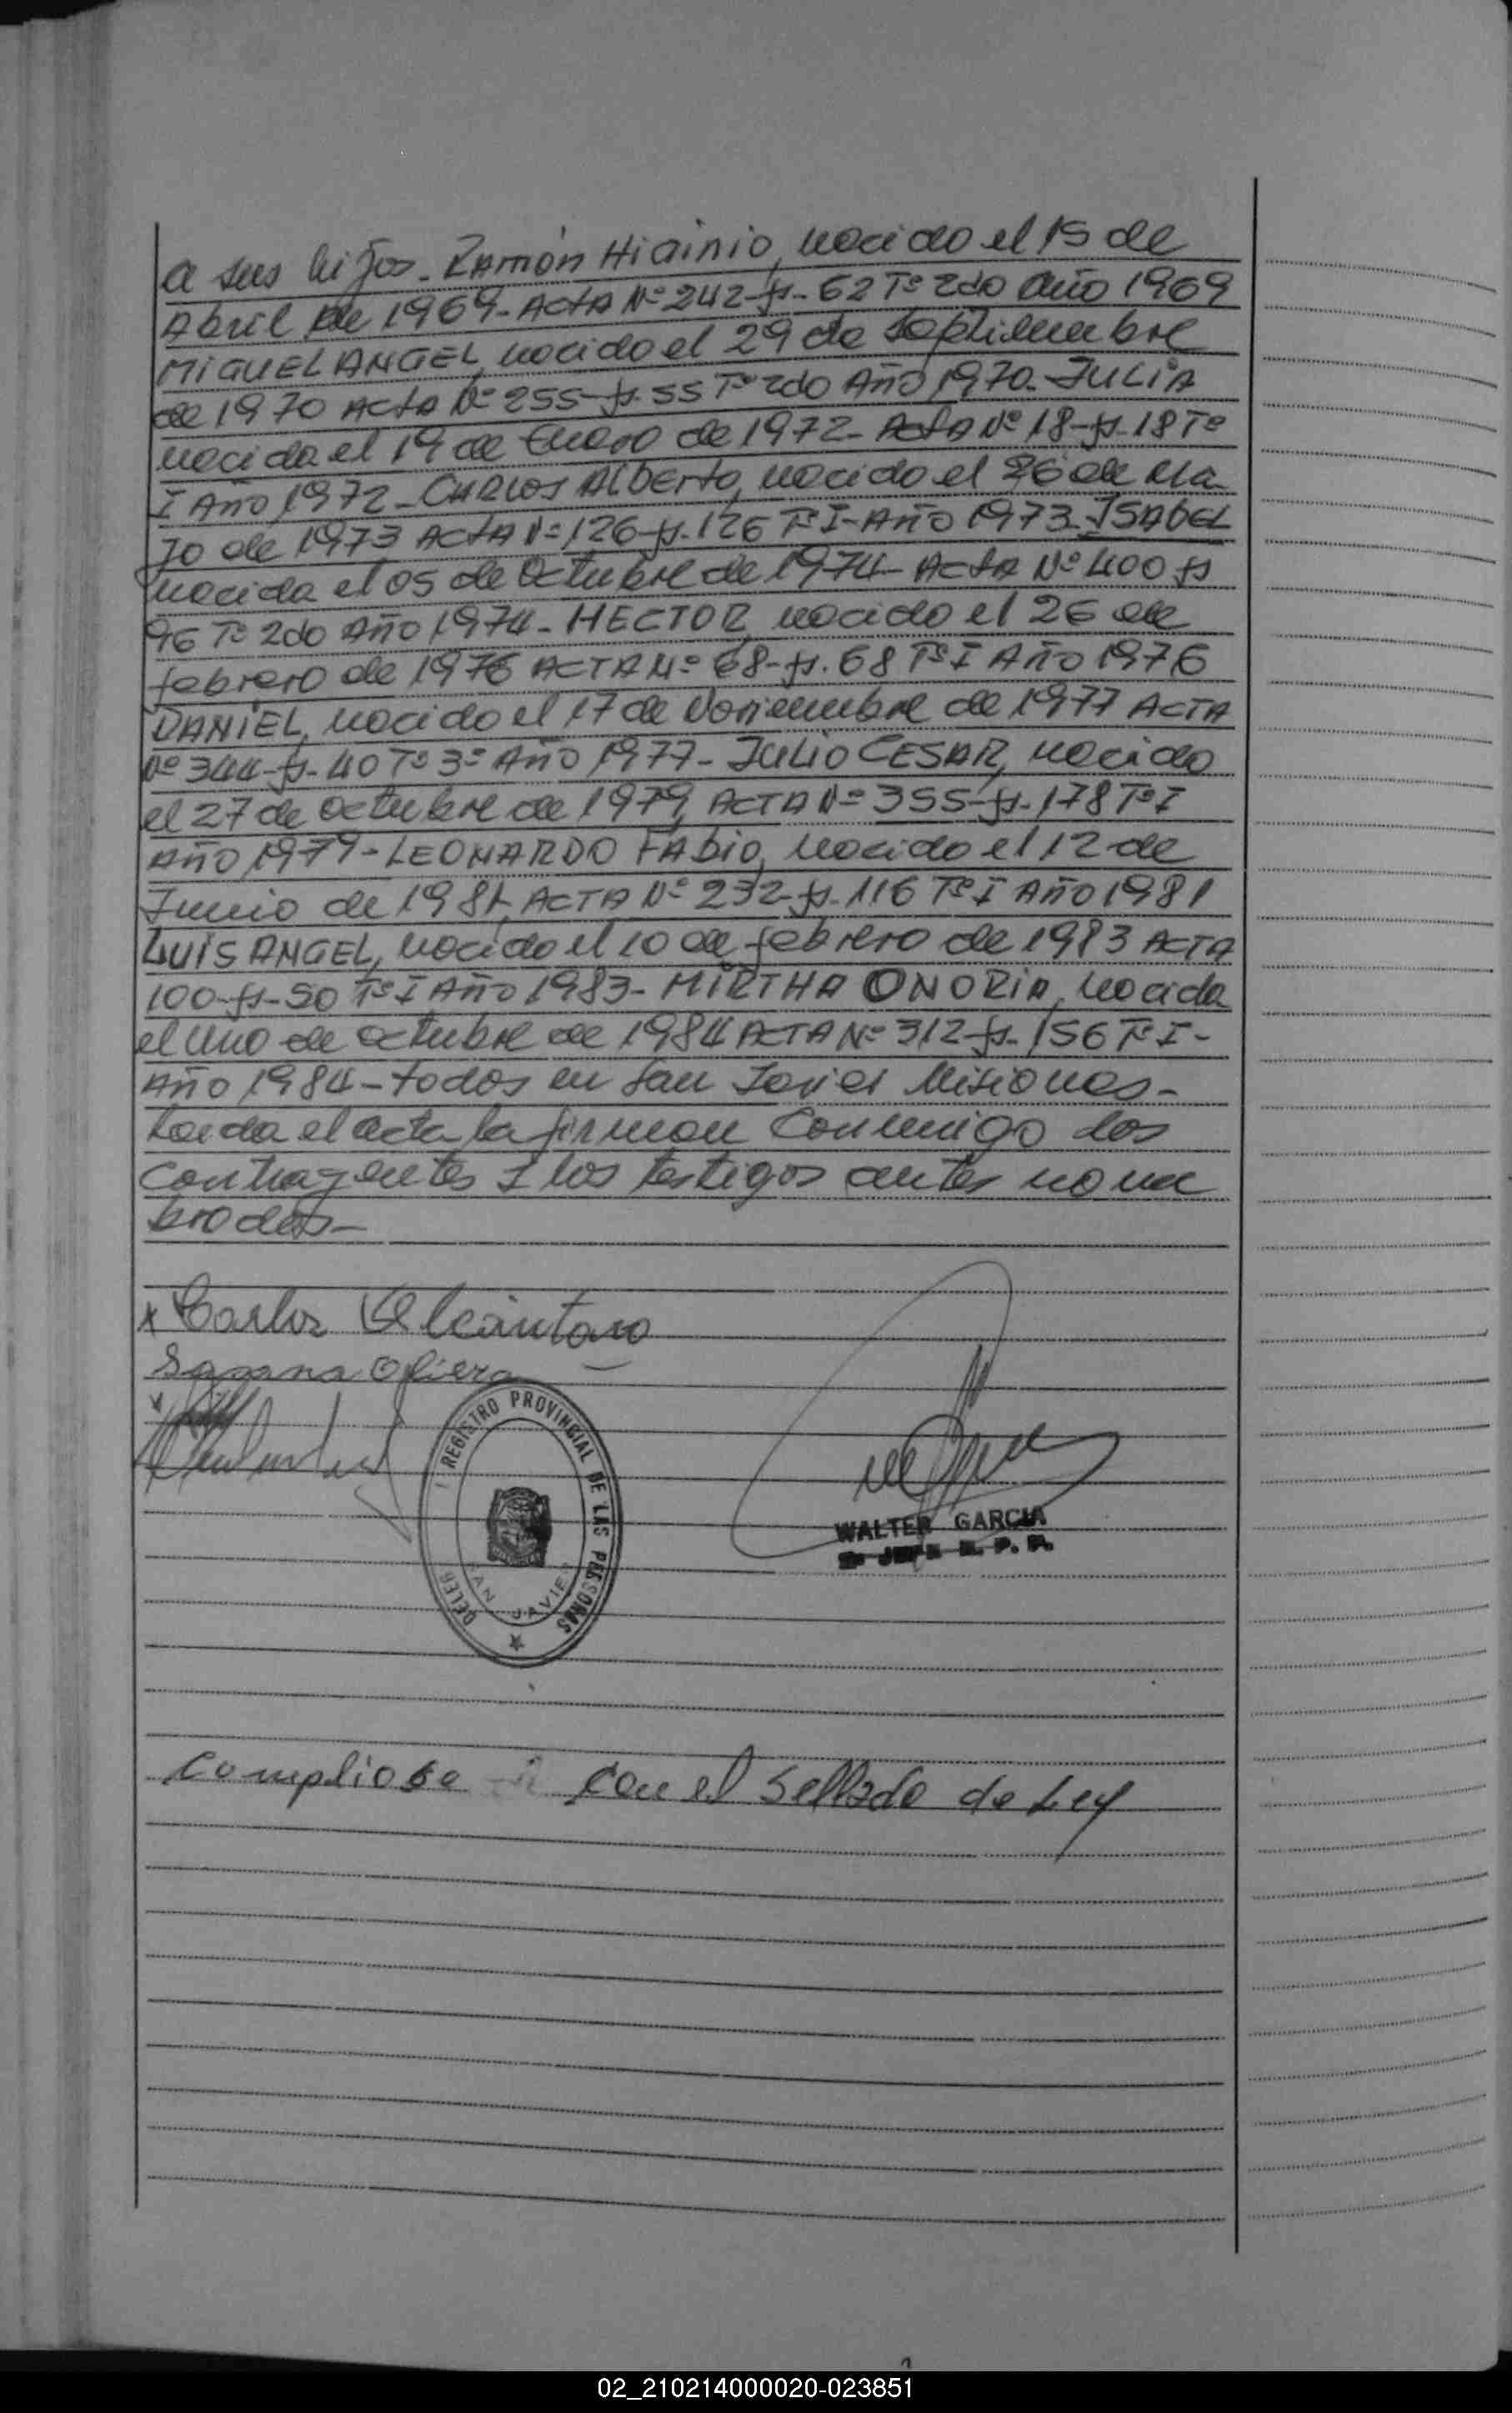 a sus hijos - Ramón Higinio, nacido el 15 de
Abril de 1969 - Acta Nº 242 - fs - 62 Tº 2do Año 1969
MIGUEL ANGEL, nacido el 29 de Septiembre
de 1970 Acta Nº 255 - fs. 55 Tº 2do Año 1970 - JULIA
nacida el 19 de Enero de 1972 - Acta Nº 18 - fs. 18 Tº
I Año 1972 - CARLOS ALBERTO, nacido el 26 de Ma
yo de 1973 Acta Nº 126 - fs. 126 Tº I - Año 1973 - ISABEL
nacida el 05 de Octubre de 1974 - Acta Nº 400 fs
96 Tº 2do Año 1974 - HECTOR, nacido el 26 de
febrero de 1976 ACTA Nº 68 - fs. 68 Tº I Año 1976
DANIEL, nacido el 17 de Noviembre de 1977 ACTA
Nº 344 - fs - 40 Tº 3º Año 1977 - JULIO CESAR, nacido
el 27 de octubre de 1979, ACTA Nº 355 - fs - 178 Tº I
Año 1979 - LEONARDO FABIO, nacido el 12 de
Junio de 1981, ACTA Nº 232 - fs - 116 Tº I Año 1981
LUIS ANGEL, nacido el 10 de febrero de 1983 ACTA
100 - fs - 50 Tº I Año 1983 - MIRTHA ONORIA, nacida
el uno de octubre de 1984 ACTA Nº 312 - fs - 156 Tº I -
Año 1984 - todos en San Javier Misiones -
Leida el acta la firman conmigo los
contrayentes y los testigos antes nom
brados -
x Carlos Alcántara
Olivera
REGISTRO PROVINCIAL DE LAS PERSONAS
DELEG
SAN JAVIER
WALTER GARCIA
JEFE R. P. P.
Compliose con el Sellado de Ley
02_210214000020-023851